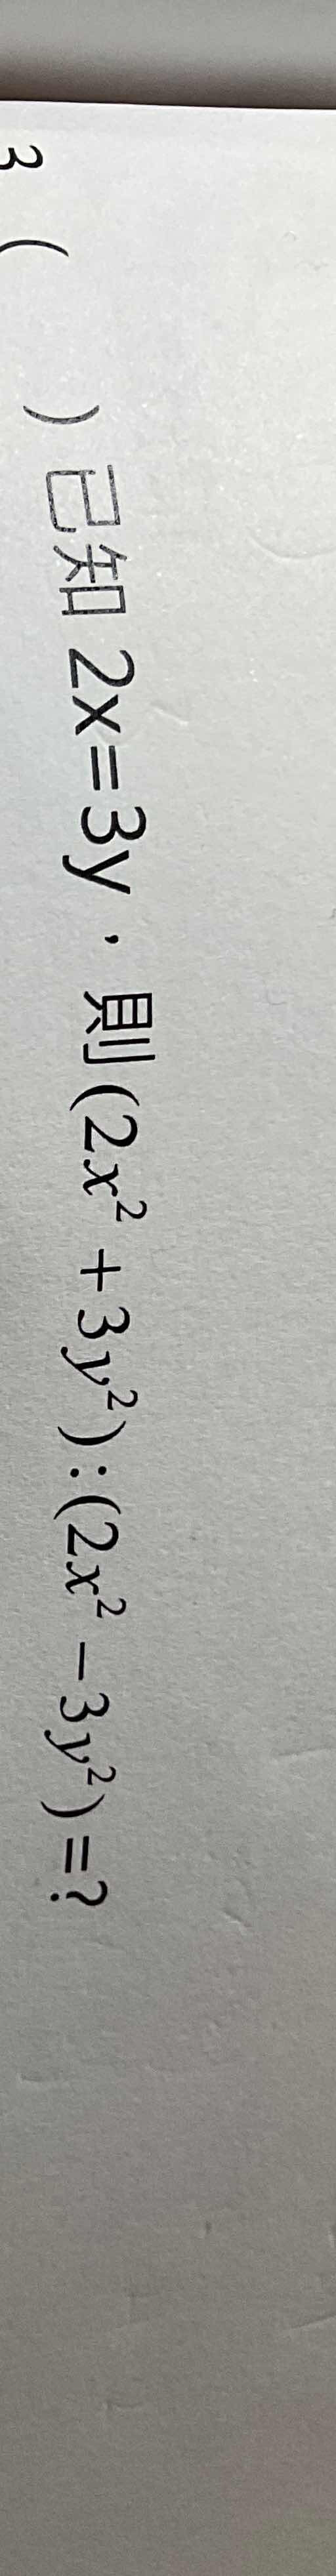 3 (    ) 已知 2x=3y，則(2x²+3y²):(2x²−3y²)=?